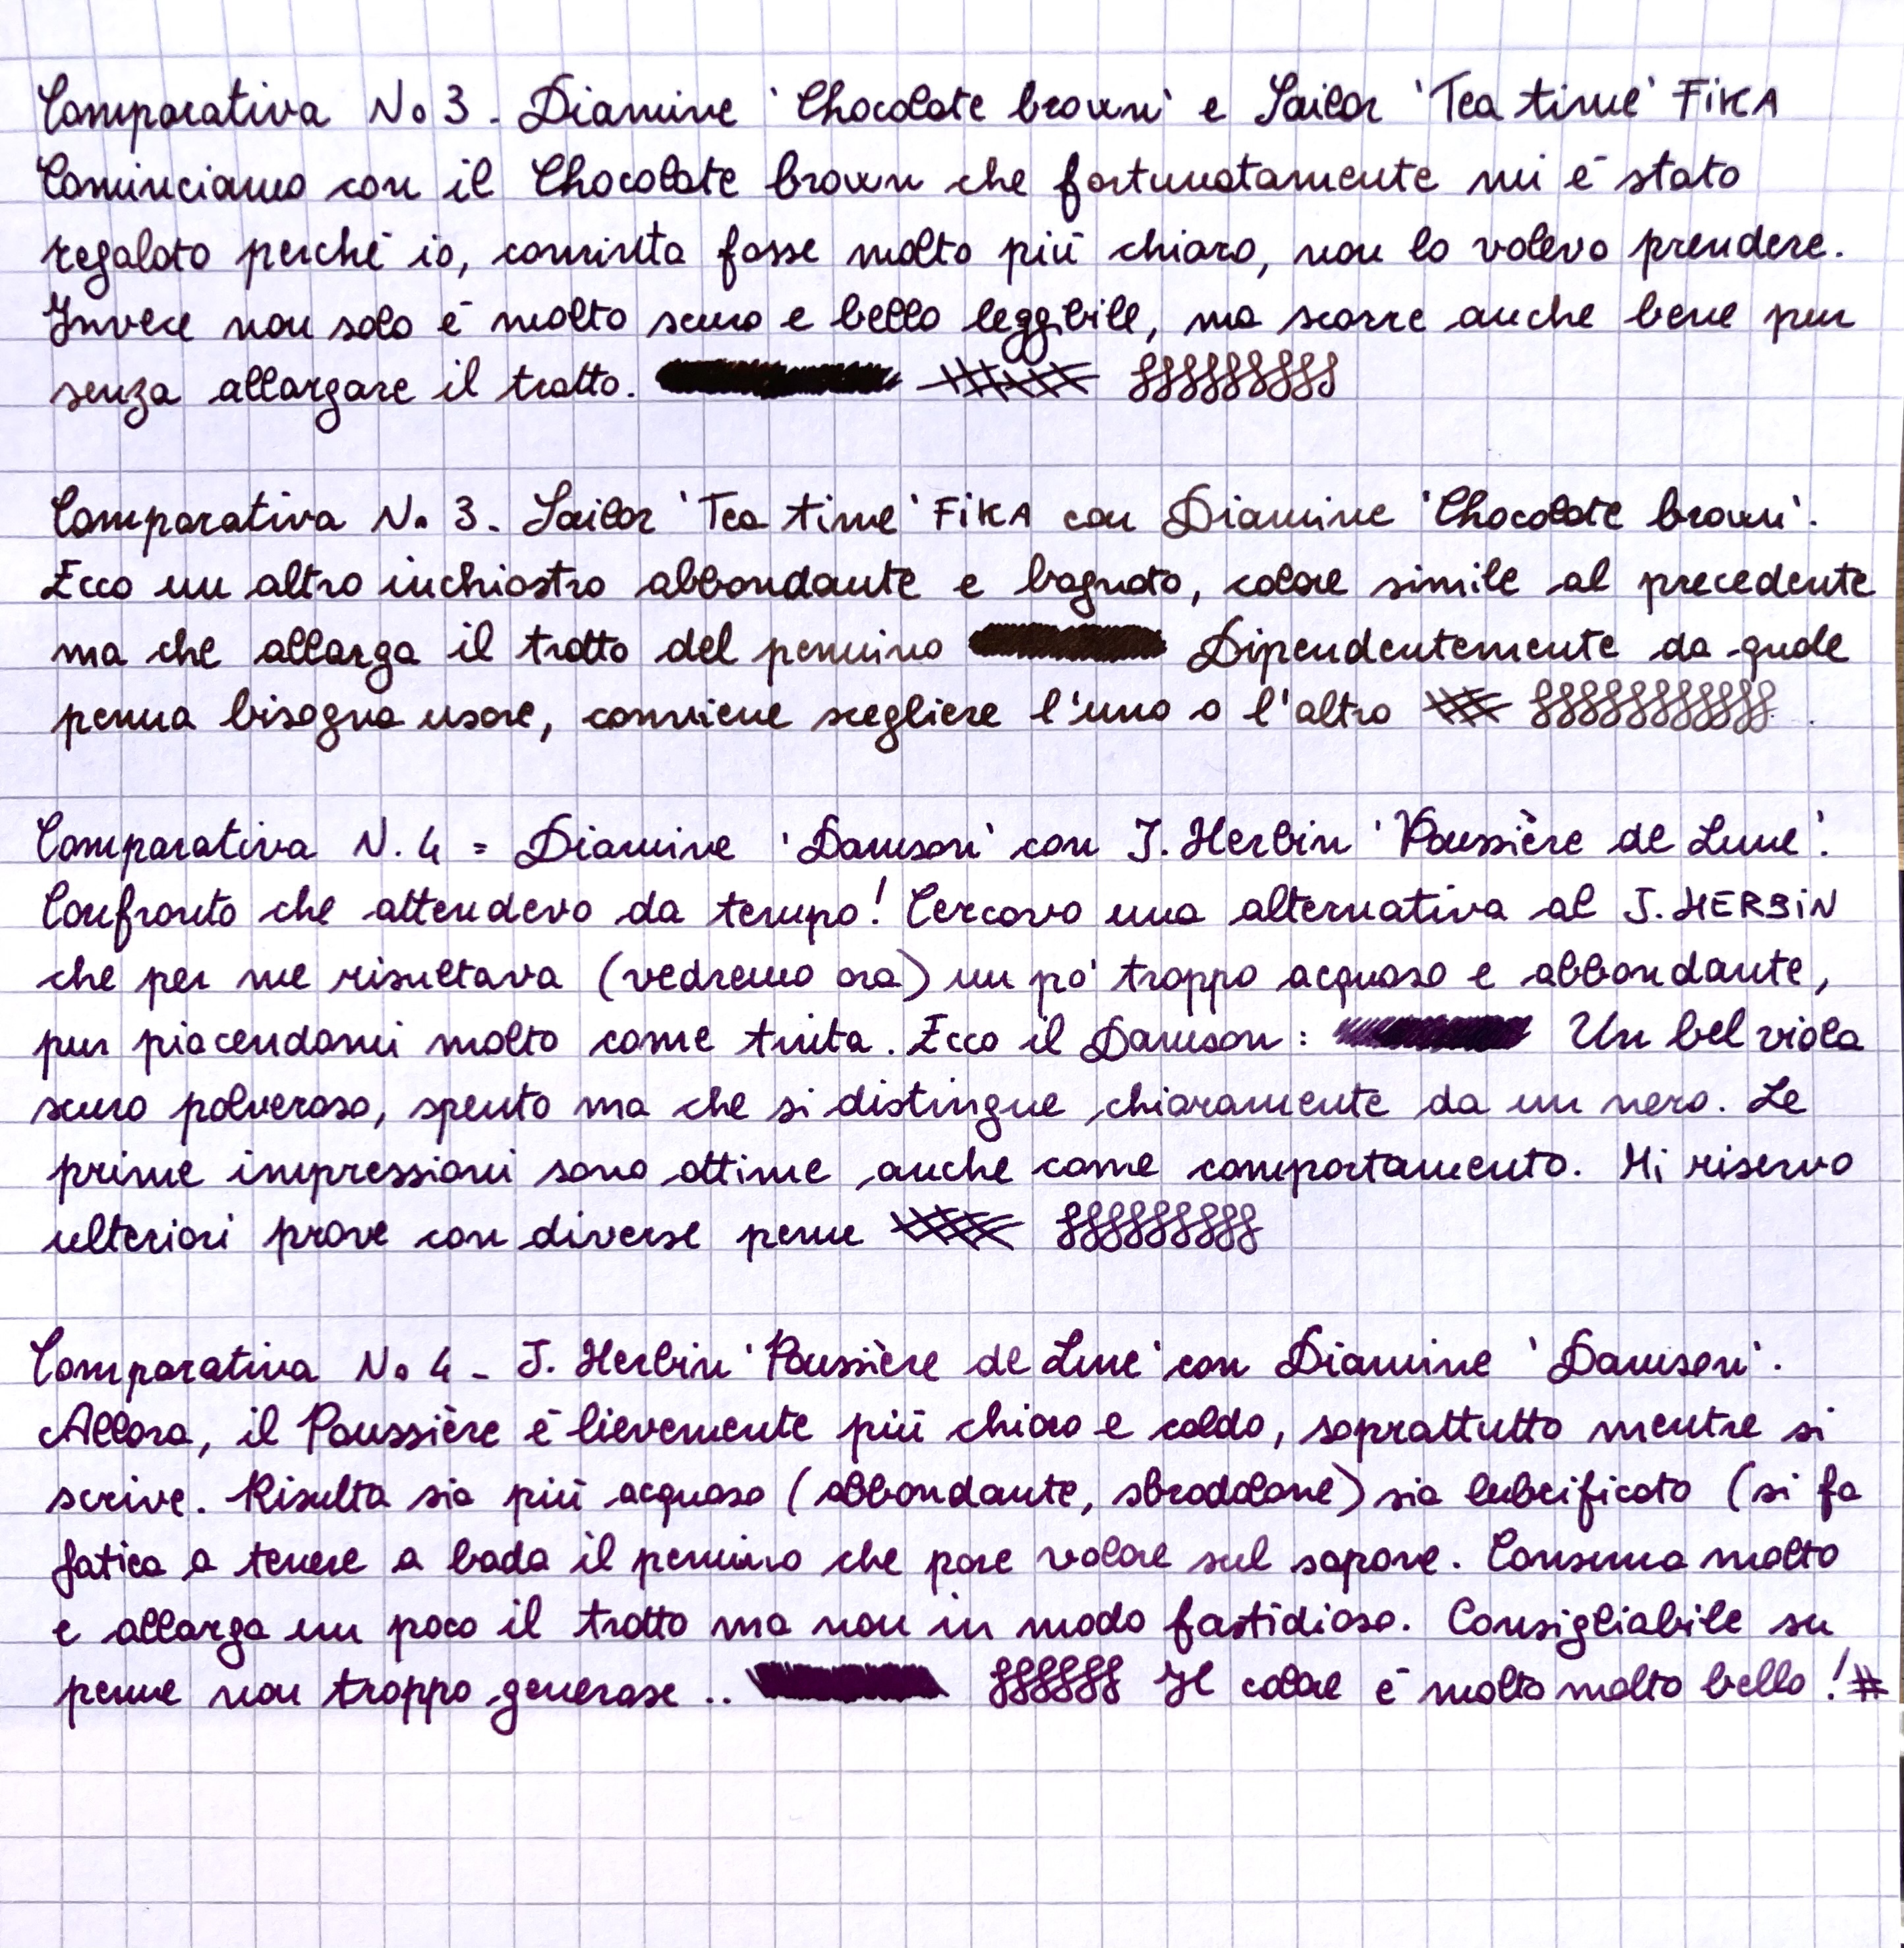 Comparativa No 3 - Diamine 'Chocolate brown' e Sailor 'Tea time' FiKA
Cominciamo con il Chocolate brown che fortunatamente mi è stato
regalato perché io, convinta fosse molto più chiaro, non lo volevo prendere.
Invece non solo è molto scuro e bello leggibile, ma scorre anche bene pur
senza allargare il tratto.
Comparativa No 3 - Sailor 'Tea time' FiKA con Diamine 'Chocolate brown'.
Ecco un altro inchiostro abbondante e bagnato, colore simile al precedente
ma che allarga il tratto del pennino Dipendentemente da quale
penna bisogna usare, conviene scegliere l'uno o l'altro
Comparativa N. 4 = Diamine 'Damson' con J. Herbin 'Poussière de Lune'.
Confronto che attendevo da tempo! Cercavo una alternativa al J. HERBiN
che per me risultava (vedremo ora) un pò troppo acquoso e abbondante,
pur piacendomi molto come tinta. Ecco il Damson: Un bel viola
scuro polveroso, spento ma che si distingue chiaramente da un nero. Le
prime impressioni sono ottime anche come comportamento. Mi riservo
ulteriori prove con diverse penne
Comparativa No 4 - J. Herbin 'Poussière de Lune' con Diamine 'Damson'.
Allora, il Poussière è lievemente più chiaro e caldo, soprattutto mentre si
scrive. Risulta sia più acquoso (abbondante, sbrodolone) sia lubrificato (si fa
fatica a tenere a bada il pennino che pare volare sul sapone. Consuma molto
e allarga un poco il tratto ma non in modo fastidioso. Consigliabile su
penne non troppo generose .. Il colore è molto molto bello! #